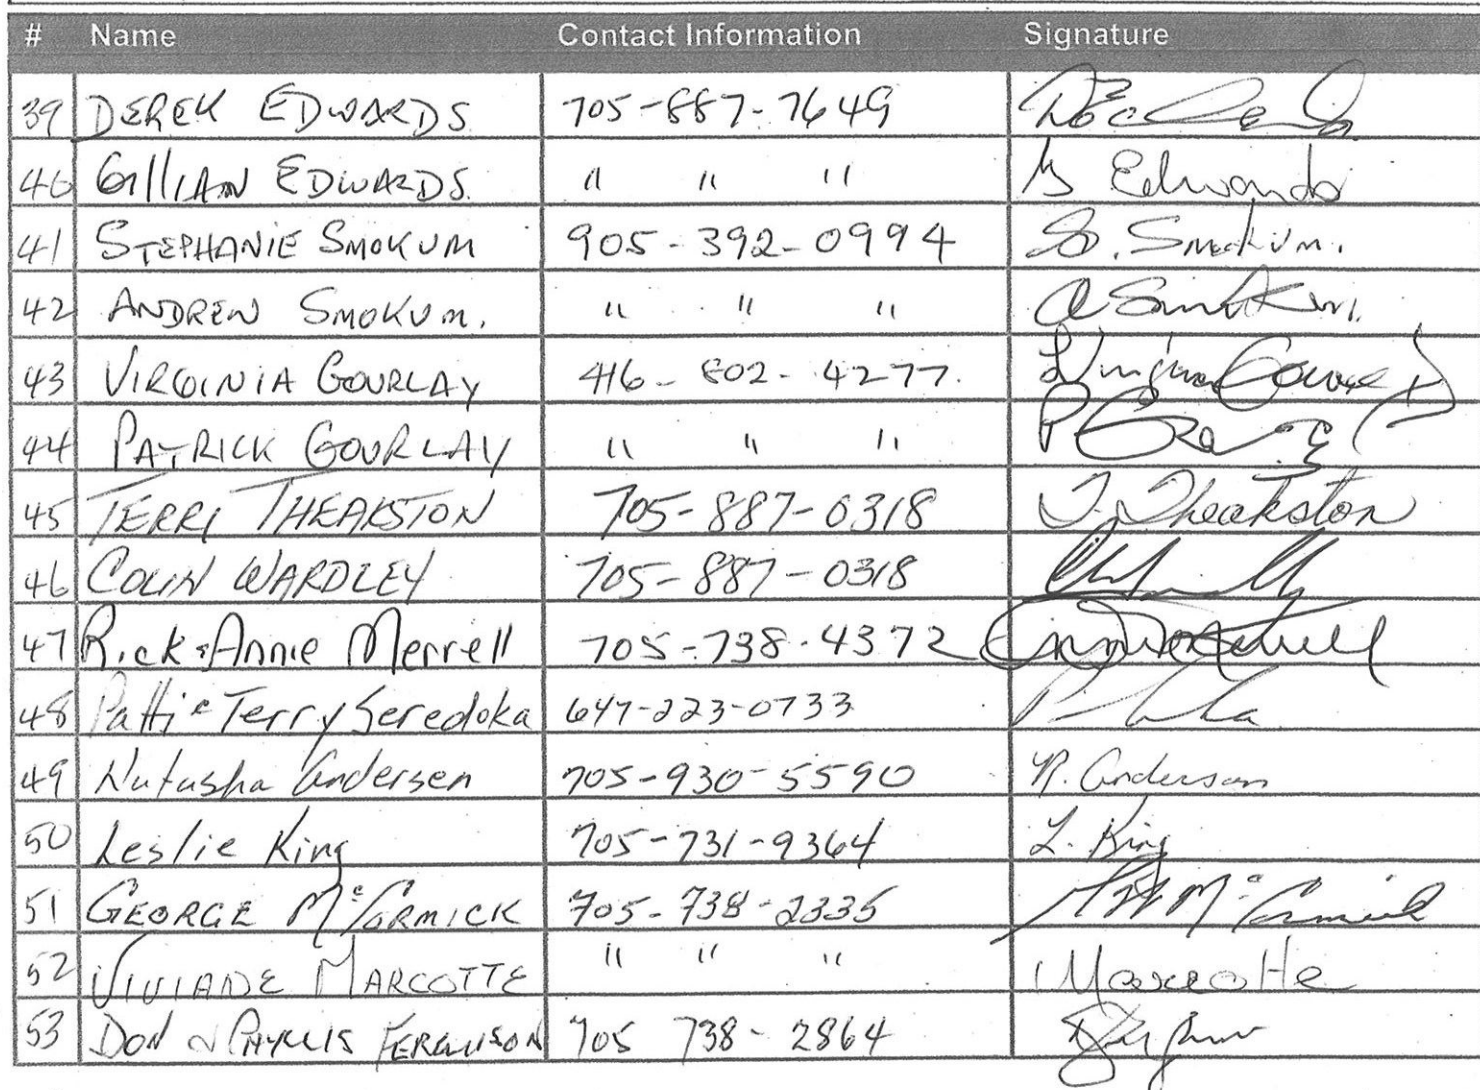 # Name Contact Information Signature
39 DEREK EDWARDS 705-887-7649
40 GIllIAN EDWARDS. " " " G Edwards
41 STEPHANIE SMOKUM 905-392-0994 S. Smokum.
42 ANDREW SMOKUM. " " " A Smokum.
43 VIRGINIA GOURLAY 416-802-4277. Virginia Gourlay
44 PATRICK GOURLAY " " "
45 TERRI THEAKSTON 705-887-0318 T. Theakston
46 COLIN WARDLEY 705-887-0318
47 Rick & Annie Merrell 705-738-4372
48 Patti & Terry Seredoka 647-223-0733
49 Natasha Andersen 705-930-5590 N. Andersen
50 Leslie King 705-731-9364 L. King
51 GEORGE McCORMICK 705-738-2335 McCormick
52 VIVIANE MARCOTTE " " " Marcotte
53 DON & PHYLLIS FERGUSON 705 738-2864